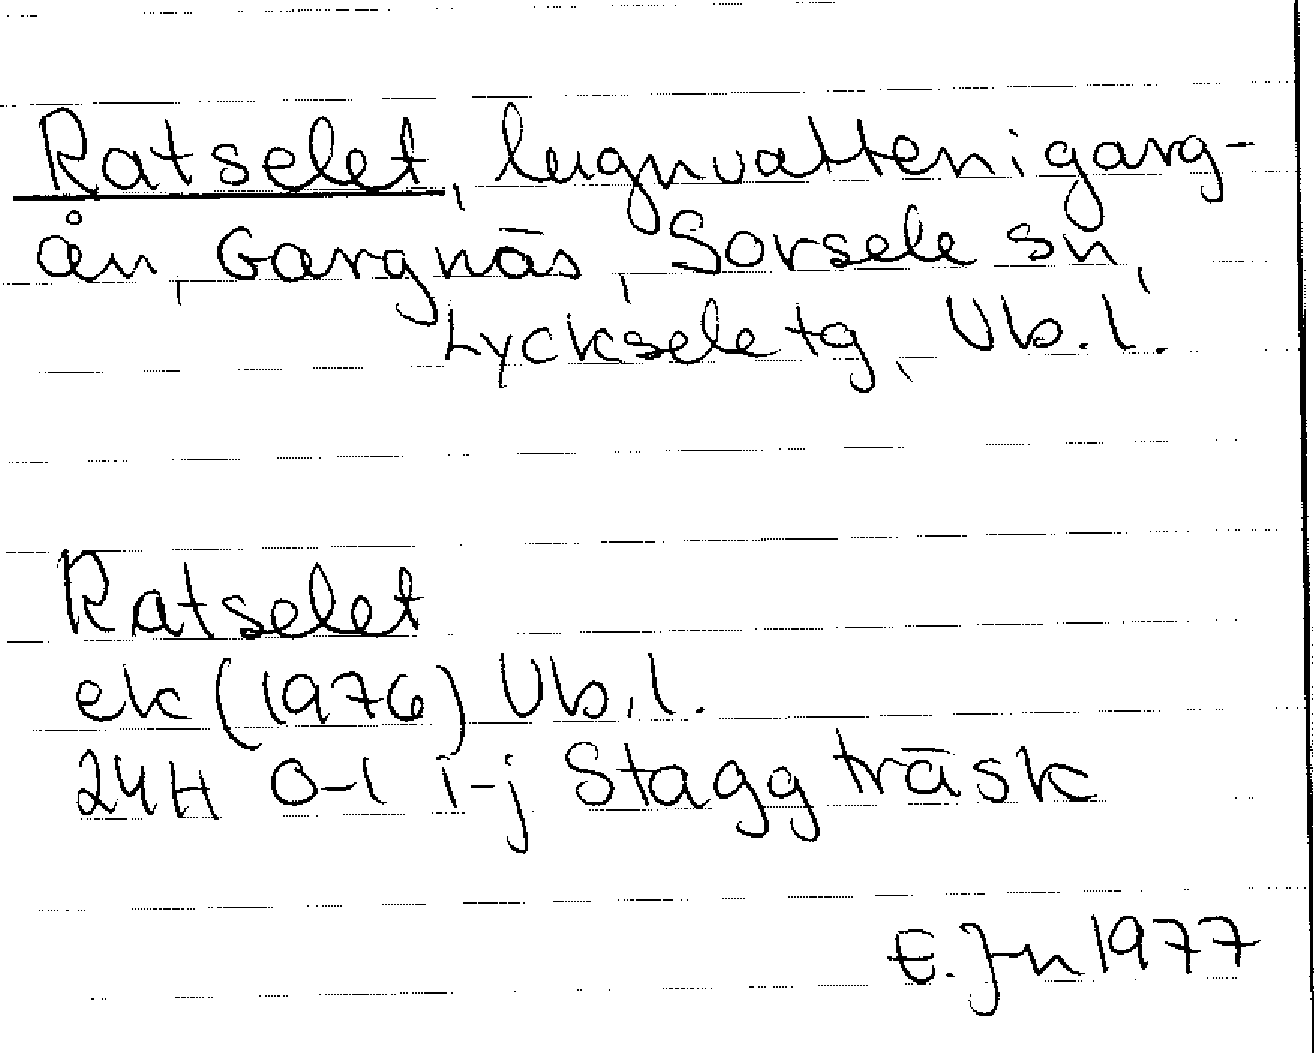 Ratselet, lugnvatten i Garg-
ån, Gargnäs, Sorsele sn,
Lycksele tg, Vb. l.
Ratselet
ek (1976) Vb. l.
24H 0-1 i-j Staggträsk
E. Jn 1977